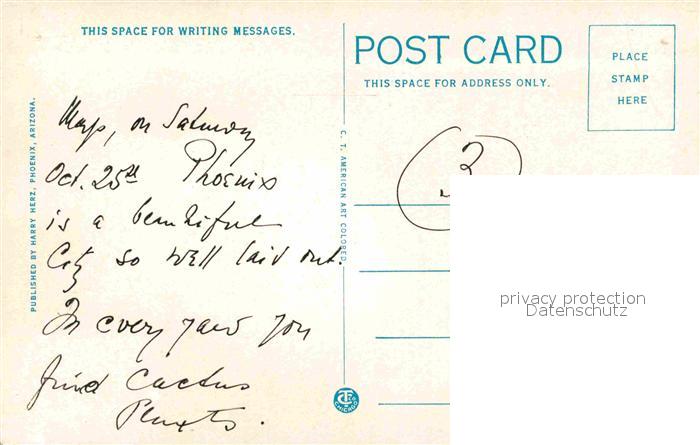 THIS SPACE FOR WRITING MESSAGES.
POST CARD
THIS SPACE FOR ADDRESS ONLY.
PLACE
STAMP
HERE
PUBLISHED BY HARRY HERZ, PHOENIX, ARIZONA.
C. T. AMERICAN ART COLORED
on Saturday
Oct. 25th Phoenix
is a beautiful
City so well laid out.
In every yard you
find Cactus
Plants.
3
privacy protection
Datenschutz
CHICAGO